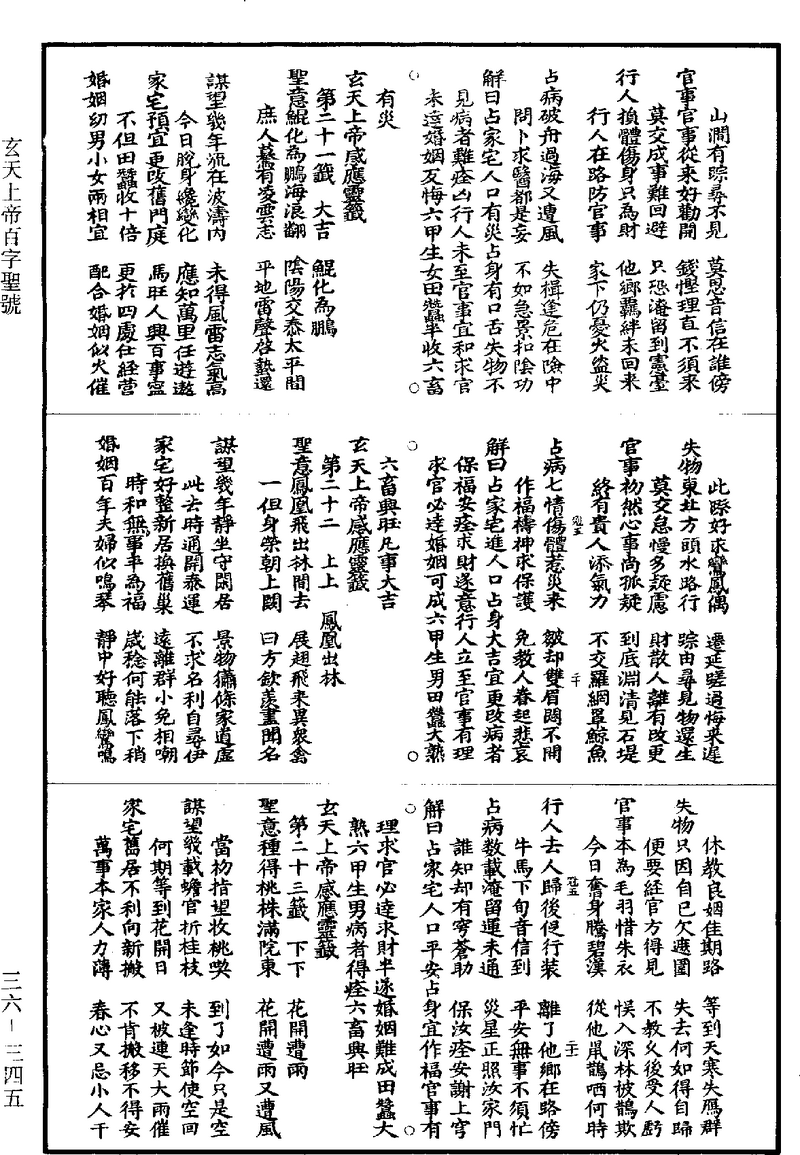 山澗有踪尋不見　莫思音信在誰傍
官事官事從來好勸開　錢慳理直不須來
莫交成事難回避　只恐淹留到憲臺
行人換體傷身只為財　他鄉羈絆未回來
行人在路防官事　家下仍憂火盜災
占病破舟過海又遭風　失楫逢危在險中
問卜求醫都是妄　不如急景扣陰功
解曰占家宅人口有災占身有口舌失物不
見病者難痊凶行人未至官事宜和求官
未遠婚姻反悔六甲生女田蠶半收六畜
有災
玄天上帝感應靈籤
第二十一籤　大吉　鯤化為鵬
聖意鯤化為鵬海浪翻　陰陽交泰太平間
庶人驀有凌雲志　平地雷聲啓蟄還
謀望幾年流在波濤內　未得風雷志氣高
今日脫身纔變化　應知萬里任遊遨
家宅預宜更改舊門庭　馬旺人興百事寧
不但田蠶收十倍　更於四處任經營
婚姻幼男小女兩相宜　配合婚姻似火催
此際好求鸞鳳偶　遷延蹉過悔來遲
失物東北方頭水路行　踪由尋見物還生
莫交怠慢多疑慮　財散人離有改更
官事初然心事尚孤疑　到底淵清見石堤
終有貴人添氣力　不交羅網罩鯨魚
占病七情傷體惹災來　皺却雙眉悶不開
作福禱神求保護　免教人眷起悲哀
解曰占家宅進人口占身大吉宜更改病者
保福安痊求財遂意行人立至官事有理
求官必達婚姻可成六甲生男田蠶大熟
六畜興旺凡事大吉
玄天上帝感應靈籤
第二十二　上上　鳳凰出林
聖意鳳凰飛出林間去　展翅飛來異衆禽
一但身榮朝上闕　曰方欽羨畫聞名
謀望幾年靜坐守閑居　景物蕭條家道虛
此去時通開泰運　不求名利自尋伊
家宅好整新居換舊巢　遠離群小免相嘲
時和無事平為福　歲稔何能落下稍
婚姻百年夫婦似鳴琴　靜中好聽鳳鸞鳴
休教良姻佳期路　等到天寒失鴈群
失物只因自己欠遮圍　失去何如得自歸
便要經官方得見　不教久後受人虧
官事本為毛羽惜朱衣　悞入深林被鵲欺
今日奮身騰碧漢　從他鼠鵲哂何時
行人去人歸後促行裝　離了他鄉在路傍
牛馬下旬音信到　平安無事不須忙
占病数載淹留運未通　災星正照汝家門
誰知却有穹蒼助　保汝痊安謝上穹
解曰占家宅人口平安占身宜作福官事有
理求官必達求財半遂婚姻難成田蠶大
熟六甲生男病者得痊六畜興旺
玄天上帝感應靈籤
第二十三籤　下下　花開遭雨
聖意種得桃株滿院東　花開遭雨又遭風
當初指望收桃喫　到了如今只是空
謀望幾載蟾宮折桂枝　未逢時節使空回
何期等到花開日　又被連天大雨催
家宅舊居不利向新搬　不肯搬移不得安
萬事本家人力薄　春心又忌小人干
玄天上帝百字聖號
三六－三四五